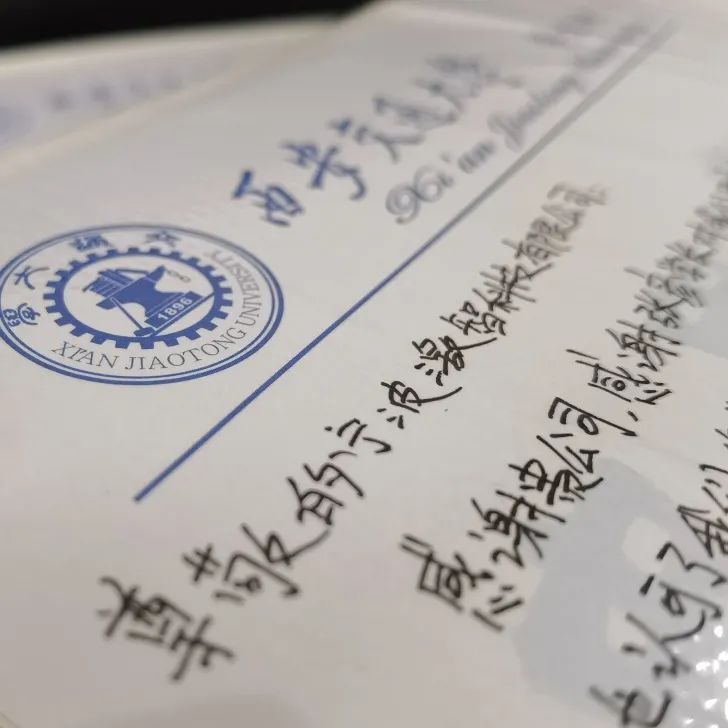 西安交通大学
Xi'an Jiaotong
XI'AN JIAOTONG UNIVERSITY
1896
尊敬的宁波激智科技有限公司:
感谢贵公司,感谢张彦
也认可了我们